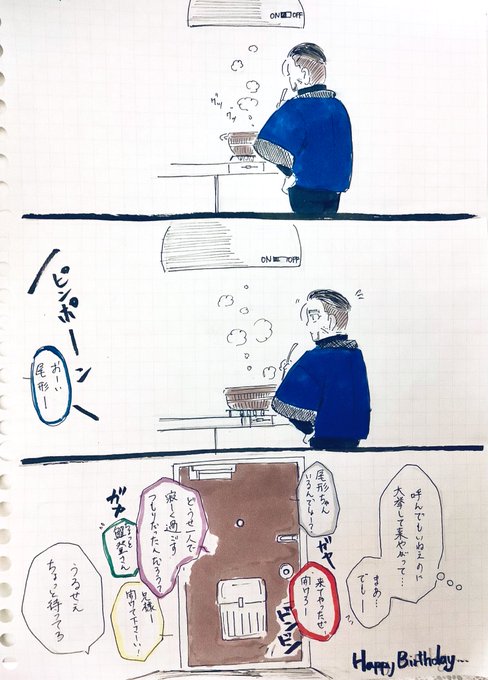 ON OFF
グツ
グツ
ON OFF
ピンポーン
おーい
尾形ー
呼んでもいねえのに
大挙して来やがって…
まあ…
でもー
尾形ちゃん
いるんでしょー?
ガヤ
来てやったぜ
開けろー
どうせ一人で
寂しく過ごす
つもりだったんだろう?
ガヤ
兄様ー
開けて下さーい!
うるせえ
ちょっと待ってろ
ピンピン
Happy Birthday...